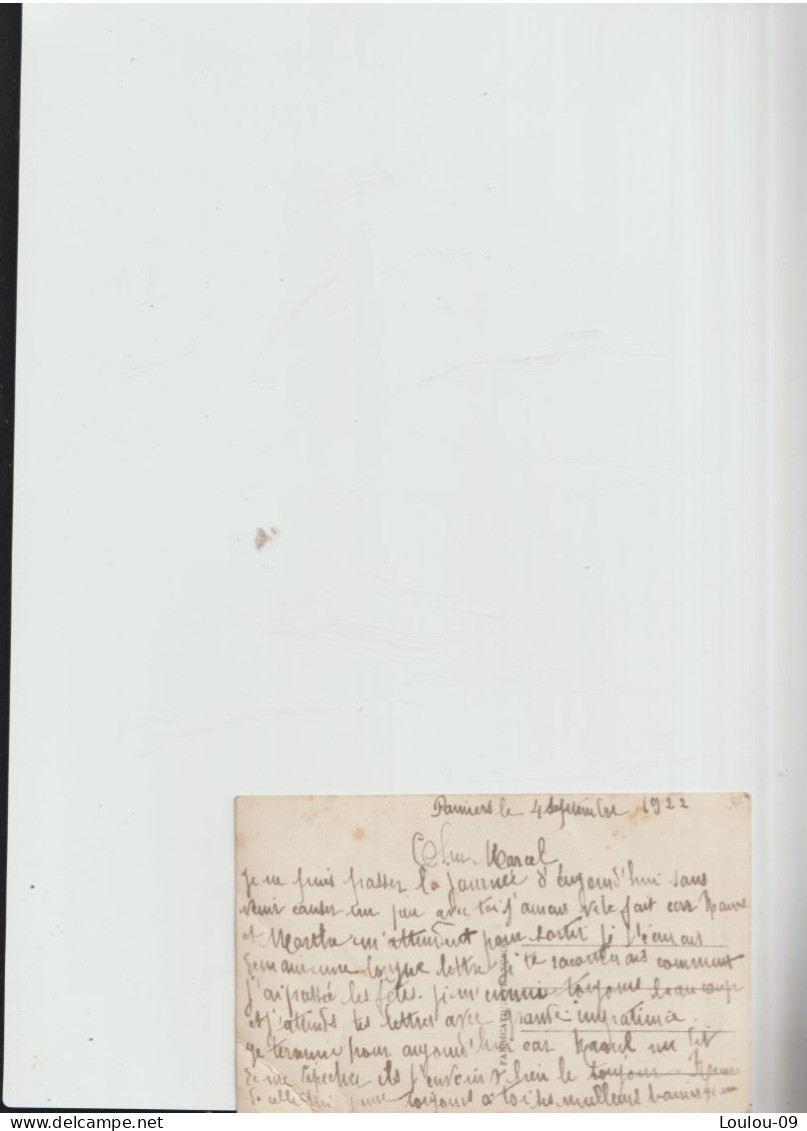 Pamiers le 4 Septembre 1922
Cher Marcel
Je ne puis passer la journée d'aujourd'hui sans
venir causer un peu avec toi j'aurais vite fait car
et Martha m'attendent pour sortir je t'écrirais
demain une longue lettre je te raconterais comment
j'ai passée les fêtes. je m'ennui toujours beaucoup
et j'attends tes lettres avec grande impatience.
je termine pour aujourd'hui car me dit
de me dépecher
de celle qui toujours à toi ses meilleurs baisers
FABRICATION
Loulou-09